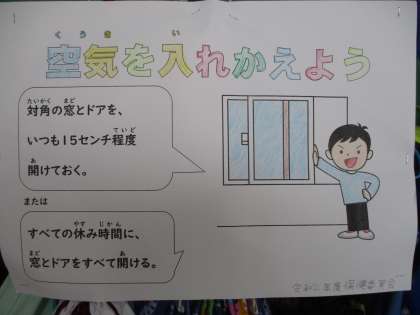 くうき い
空気を入れかえよう
たいかく まど
対角の窓とドアを、
ていど
いつも15センチ程度
あ
開けておく。
または
やす じかん
すべての休み時間に、
まど あ
窓とドアをすべて開ける。
令和二年度保健委員会